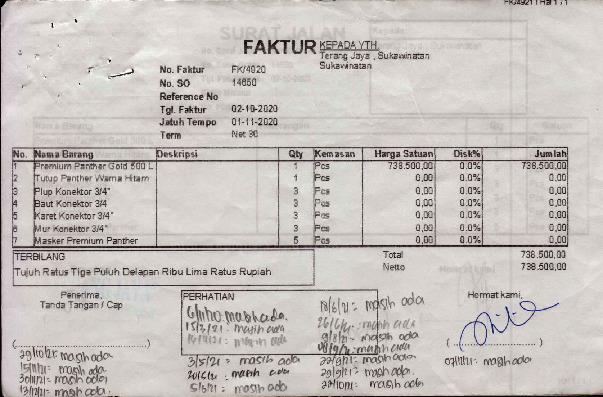 FK/4921 | Hal 1 / 1
FAKTUR
KEPADA YTH.
Terang Jaya , Sukawinatan
Sukawinatan
No. Faktur FK/4920
No. SO 14650
Reference No
Tgl. Faktur 02-10-2020
Jatuh Tempo 01-11-2020
Term Net 30
No. Nama Barang Deskripsi Qty Kemasan Harga Satuan Disk% Jumlah
1 Premium Panther Gold 500 L 1 Pcs 738.500,00 0.0% 738.500,00
2 Tutup Panther Warna Hitam 1 Pcs 0,00 0.0% 0,00
3 Plup Konektor 3/4" 3 Pcs 0,00 0.0% 0,00
4 Baut Konektor 3/4 3 Pcs 0,00 0.0% 0,00
5 Karet Konektor 3/4" 3 Pcs 0,00 0.0% 0,00
6 Mur Konektor 3/4" 3 Pcs 0,00 0.0% 0,00
7 Masker Premium Panther 5 Pcs 0,00 0.0% 0,00
TERBILANG
Tujuh Ratus Tiga Puluh Delapan Ribu Lima Ratus Rupiah
Total 738.500,00
Netto 738.500,00
Penerima,
Tanda Tangan / Cap
PERHATIAN
Hormat kami,
masih ada.
masih ada
masih ada
3/5/21 = masih ada
masih ada
5/6/21 = masih ada
18/6/21 = masih ada
masih ada
masih ada
masih ada
masih ada
masih ada
masih ada
masih ada
masih ada
masih ada.
masih ada
masih ada.
masih ada